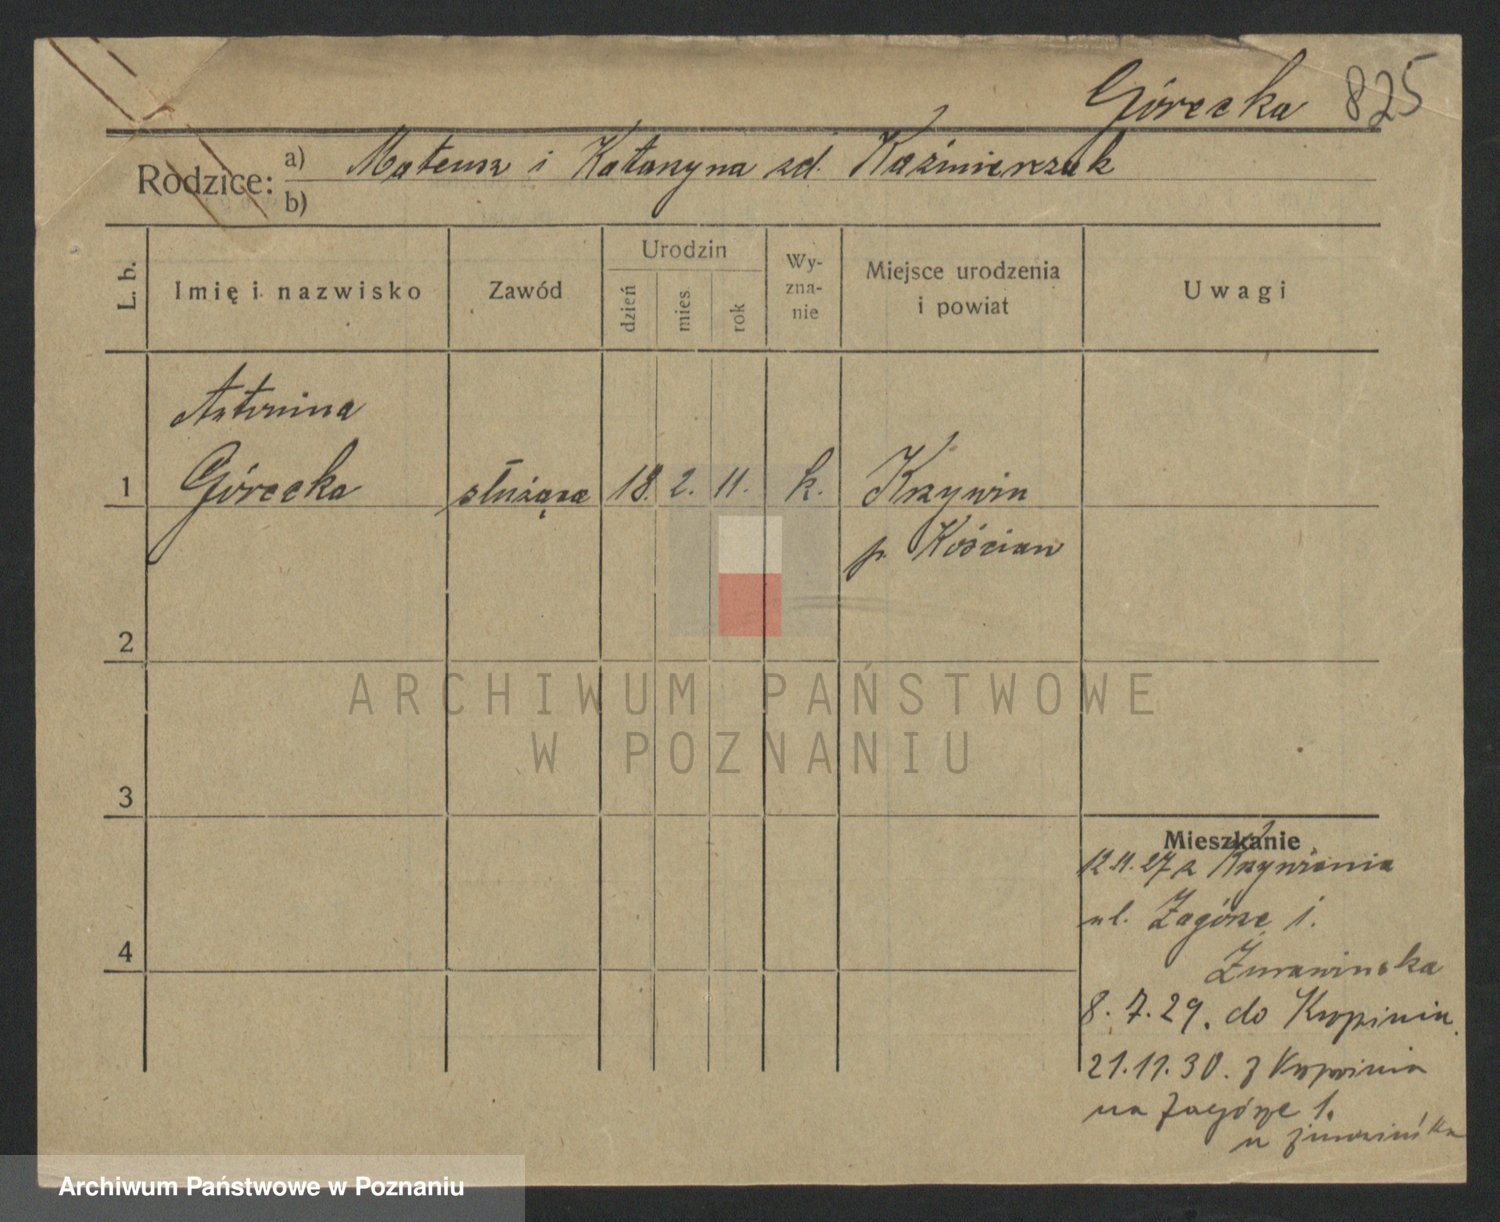 Górecka 825
Rodzice: a) Mateusz i Katarzyna zd. Kaźmierczak
b)
L. b. Imię i nazwisko Zawód Urodzin dzień mies rok Wy-zna-nie Miejsce urodzenia i powiat Uwagi
Antonina
1 Górecka służąca 18. 2. 11. k. Krzywin
p. Kościan
2
3
4
Mieszkanie
12.11.27 z Krzywinia
ul. Zagórze 1.
Żurawińska
8.7.29. do
21.11.30. z
na Zagórze 1.
u Żurawińska
ARCHIWUM PAŃSTWOWE
W POZNANIU
Archiwum Państwowe w Poznaniu